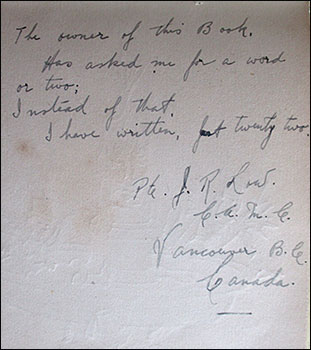 The owner of this Book.
Has asked me for a word
or two;
Instead of that,
I have written, just twenty two.
Pte. J. R.
C. A. M. C.
Vancouver B.C.
Canada.